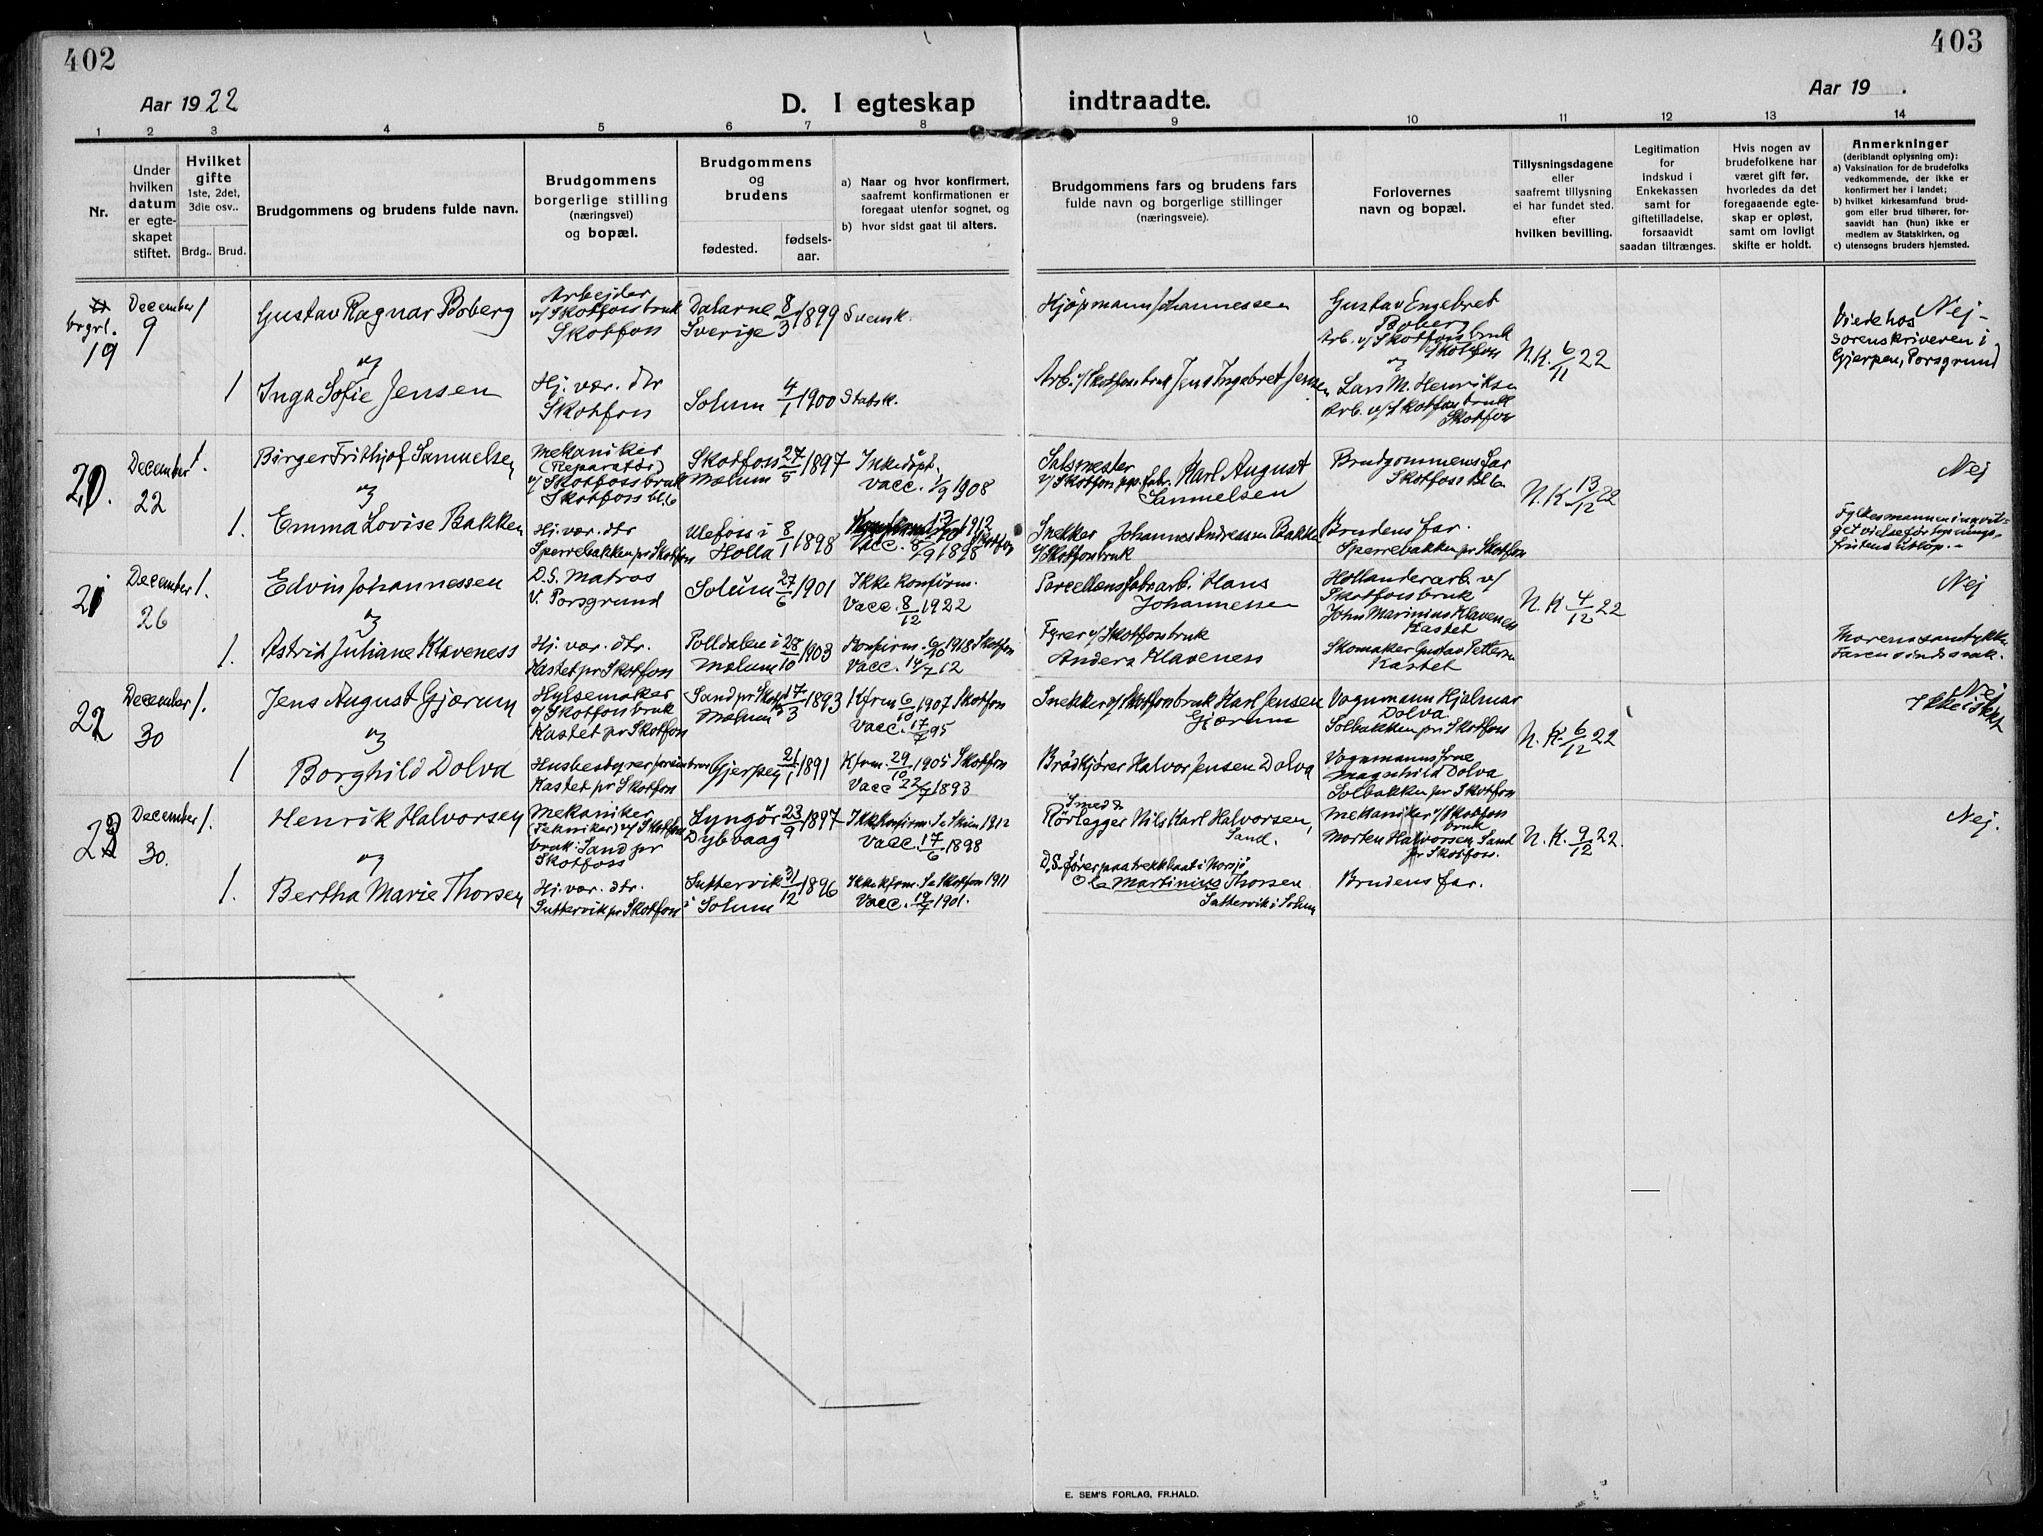 402
403
Aar 1922
D. I egteskap indtraadte.
Aar 19 .
1 2 3 4 5 6 7 8 9 10 11 12 13 14
Nr.
Under hvilken datum er egte-skapet stiftet.
Hvilket gifte
1ste, 2det, 3die osv..
Brdg.. Brud.
Brudgommens og brudens fulde navn.
Brudgommens borgerlige stilling (næringsvei) og bopæl.
Brudgommens og brudens
fødested.
fødsels-aar.
a) Naar og hvor konfirmert, saafremt konfirmationen er foregaat utenfor sognet, og
b) hvor sidst gaat til alters.
Brudgommens fars og brudens fars fulde navn og borgerlige stillinger (næringsveie).
Forlovernes navn og bopæl.
Tillysningsdagene eller saafremt tillysning ei har fundet sted, efter hvilken bevilling.
Legitimation for indskud i Enkekassen samt for giftetilladelse, forsaavidt saadan tiltrænges.
Hvis nogen av brudefolkene har været gift før, hvorledes da det foregaaende egte-skap er opløst, samt om lovligt skifte er holdt.
Anmerkninger
(deriblandt oplysning om):
a) Vaksination for de brudefolks vedkommende, der ikke er konfirmert her i landet;
b) hvilket kirkesamfund brud-gom eller brud tilhører, for-saavidt han (hun) ikke er medlem av Statskirken, og
c) utensogns bruders hjemsted.
brgrl. 19
December 9
1
Gustav Ragnar Boberg
Arbejder
v/Skotfossbruk
Skotfoss
Dalarne
Sverige
8/3 1899
Svensk.
Kjøpmann Johannessen
Gustav Engebret
Boberg
Arb. v/Skotfossbruk
Skotfoss
og
N.K. 6/11 22
Nej -
Viede hos
sorenskriveren i
Gjerpen, Porsgrund
og
1
Inga Sofie Jensen
Hj. vær. dtr
Skotfoss
Solum
4/1 1900
Statsk.
Arb. v/Skotfossbruk Jens Ingebret Jensen
Lars M. Henriksen
Arb. v/Skotfossbruk
Skotfoss
20.
December 22
1.
Børger Frithjof Samuelsen
Mekaniker
(Reparatør)
v/Skotfossbruk
Skotfoss bl.6
Skotfoss
Mælum
27/5 1897
Ikke døpt.
Vacc. 1/9 1908
Salsmester
v/Skotfoss pp. fabr. Karl August
Samuelsen
Brudgommens far
Skotfoss bl 6.
N.K 13/12 22
Nej
og
1.
Emma Lovise Bakken
Hj. vær. dtr
Sperrebakken pr Skotfoss
Ulefoss i
Holla
8/1 1898
1912 Skotfoss
Vacc. 8/9 1898
Snekker Johannes Andressen Bakke
v/Skotfossbruk
Brudens far.
Sperrebakken pr Skotfoss
Fylkesmannen innvil-
get vielse før lysnings-
fristens utløp.-
21
December 26
1.
Edvin Johannessen
D.S. Matros
V. Porsgrund
Solum
27/6 1901
Ikke konfirm.
Vacc. 8/12 1922
Porcellænsfabr.arb. Hans
Johannessen
Hollenderarb. v/
Skotfossbruk
John Marinius Klavenes
Kastet
N.K 4/12 22
Nej
og
1.
Astrid Juliane Klaveness
Hj. vær. dtr.
Kastet pr Skotfoss
Polldalen i
Mælum
28/10 1903
Konfirm. 6/10 1918 Skotfoss
Vacc. 14/7 12
Fyrer v/Skotfossbruk
Anders Klaveness
Skomaker Gustav Pettersen
Kastet
Morens samtykke
Faren sindssvak.
22
December 30
1.
Jens August Gjærum
Hylsemaker
v/Skotfossbruk
Kastet pr Skotfoss
Sand pr Skotfoss
Mælum
17/3 1893
Kfrm 6/10 1907 Skotfoss
Vacc. 17/7 95
Snekker v/Skotfossbruk Karl Jensen
Gjærum
Vognmann Hjalmar
Dolva
Solbakken pr Skotfoss
N. K. 6/12 22
Nej
og
1
Borghild Dolva
Husbestyrer for sin bror
Kastet pr Skotfoss
Gjerpen
21/1 1891
Kfrm. 29/10 1905 Skotfoss
Vacc 22/7 1893
Brødkjører Halvor Jensen Dolva
Vognmannsfrue
Magnhild Dolva
Solbakken pr Skotfoss
23
December 30.
1.
Henrik Halvorsen
Mekaniker
(Tekniker) v/Skotfoss
bruk. Sand pr
Skotfoss
Lyngør
Dybvaag
23/9 1897
Ikke konfirm. Se Skien 1912
Vacc. 17/6 1898
Smed &
Rørlegger Nils Karl Halvorsen,
Sand.
Mekaniker v/Skotfoss
bruk
Morten Halvorsen, Sand
pr Skotfoss.
N. K. 9/12 22.
Nej.
og
1.
Bertha Marie Thorsen
Hj. vær. dtr.
Suttervik pr Skotfoss
Suttervik
i Solum
31/12 1896
Ikke kfrm. Se Skotfoss 1911
Vacc. 19/7 1901.
D.S. fører paa trekkbaat i Norsjø
Ole Martinius Thorsen
Suttervik i Solum
Brudens far.
E. SEM'S FORLAG, FR.HALD.